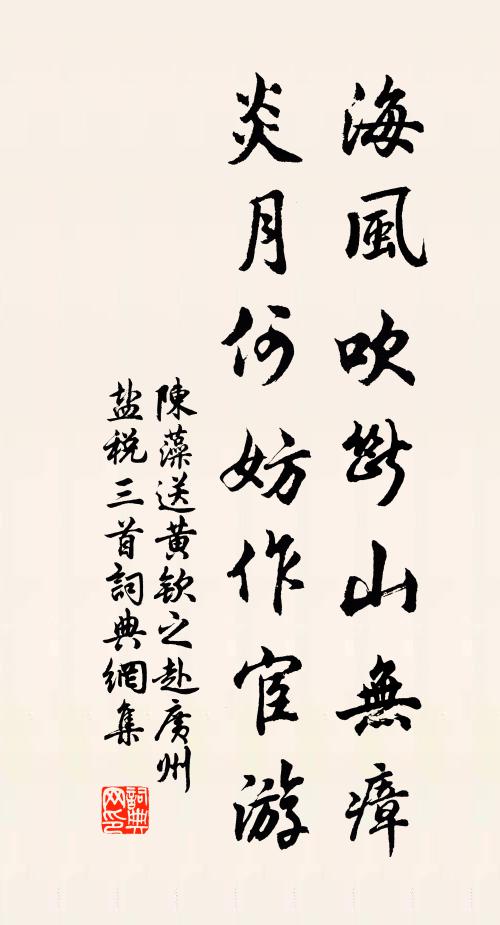 海風吹斷山無瘴
炎月何妨作宦游
陳藻送黄欽之赴廣州
盐税三首詞典網集
詞典
网印